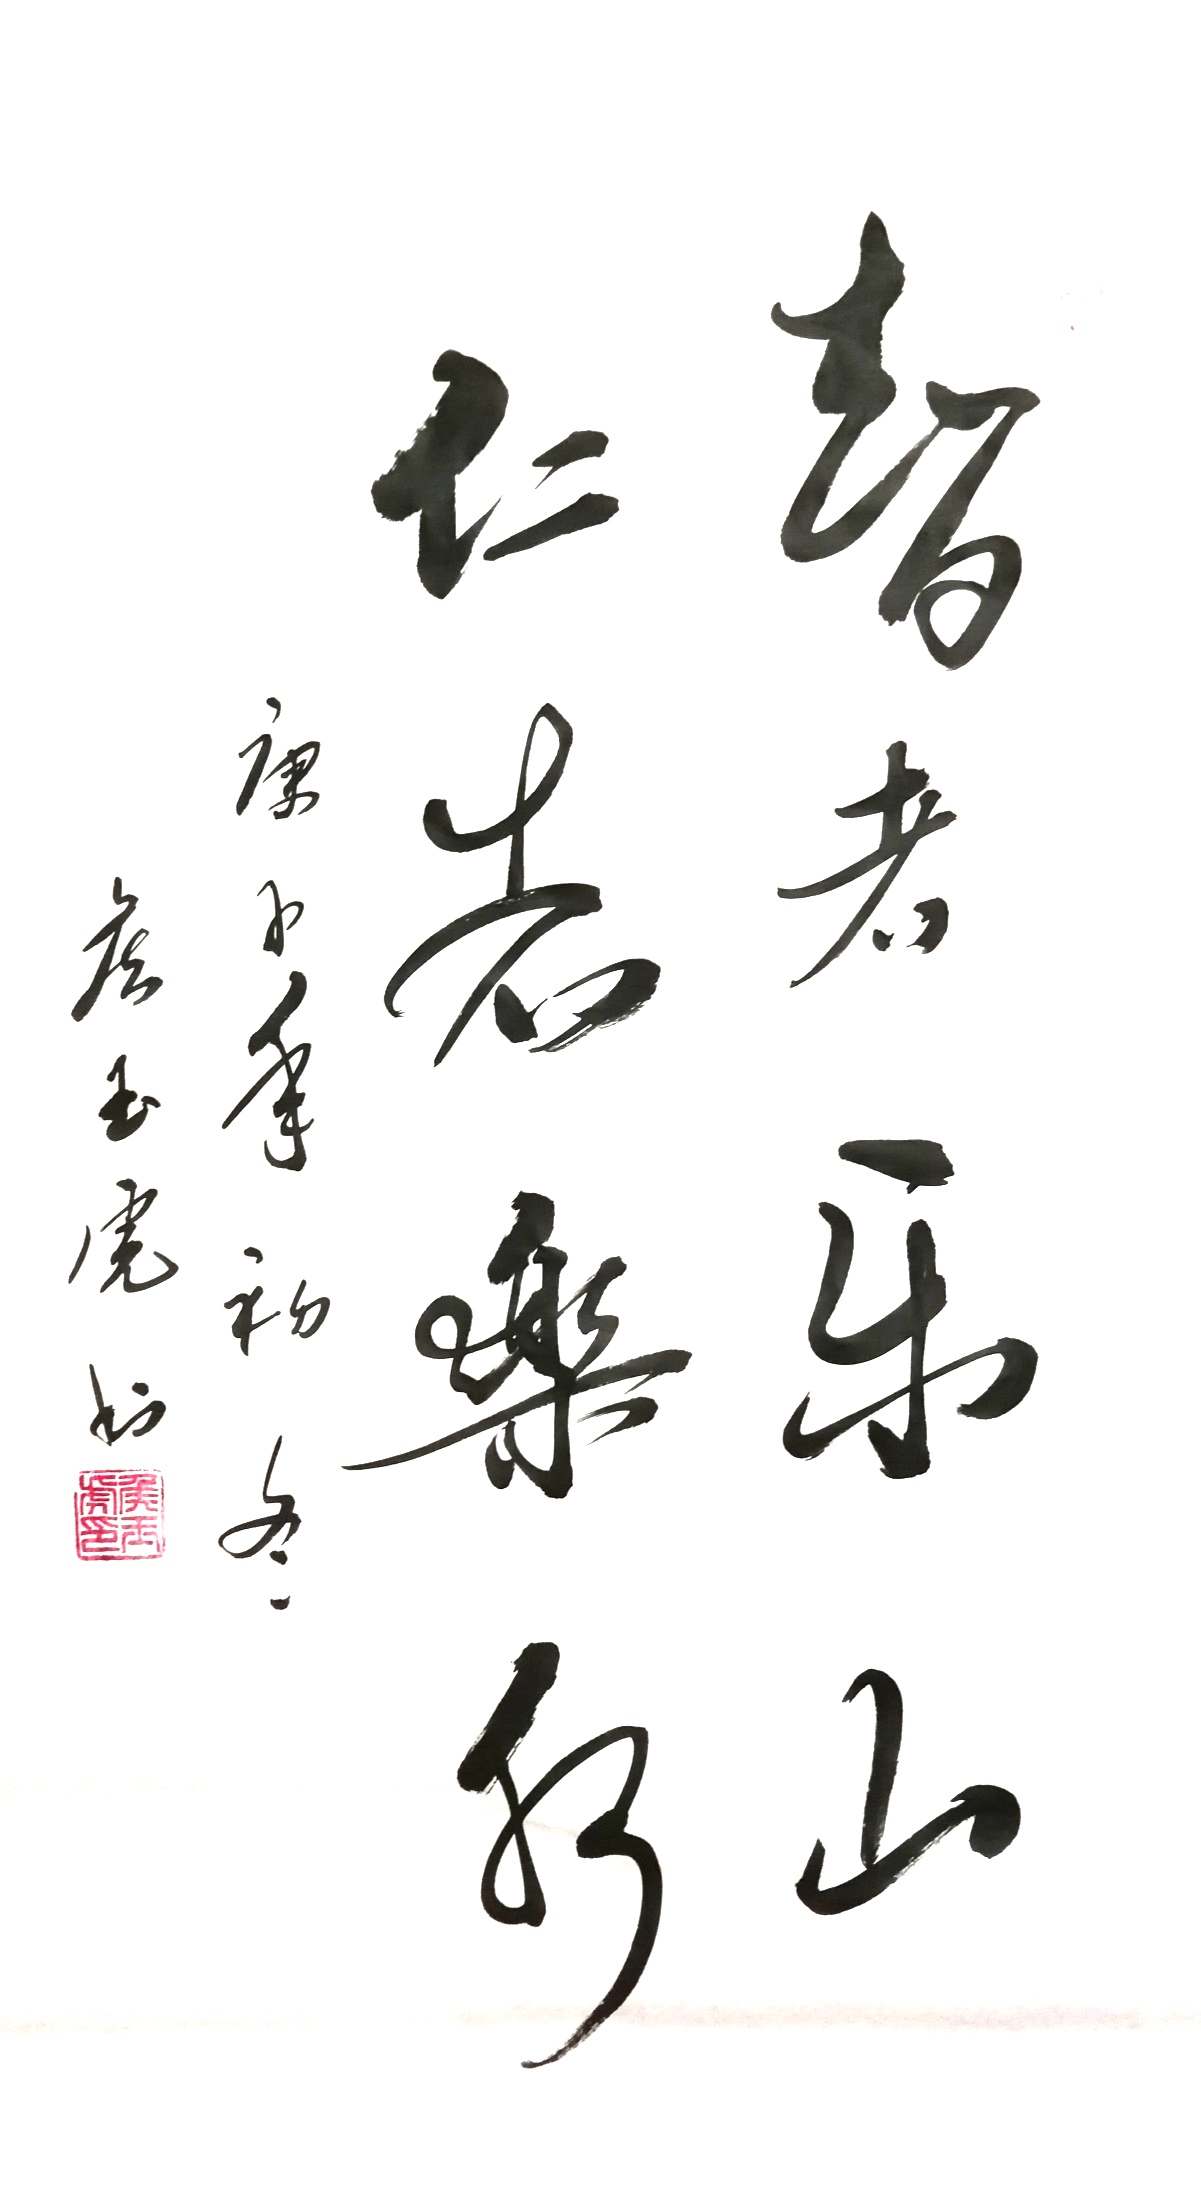 智者乐山
仁者樂水
庚子年初冬
侯玉虎书
侯玉虎印